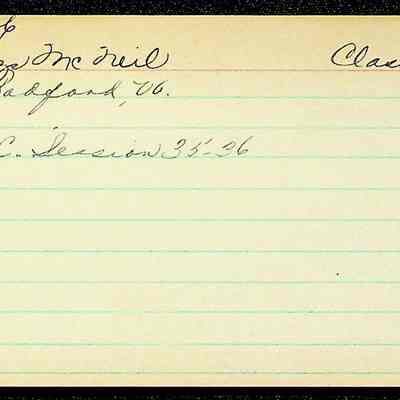 Mc Neil Clas
Radford, Va.
C. Session 35-36